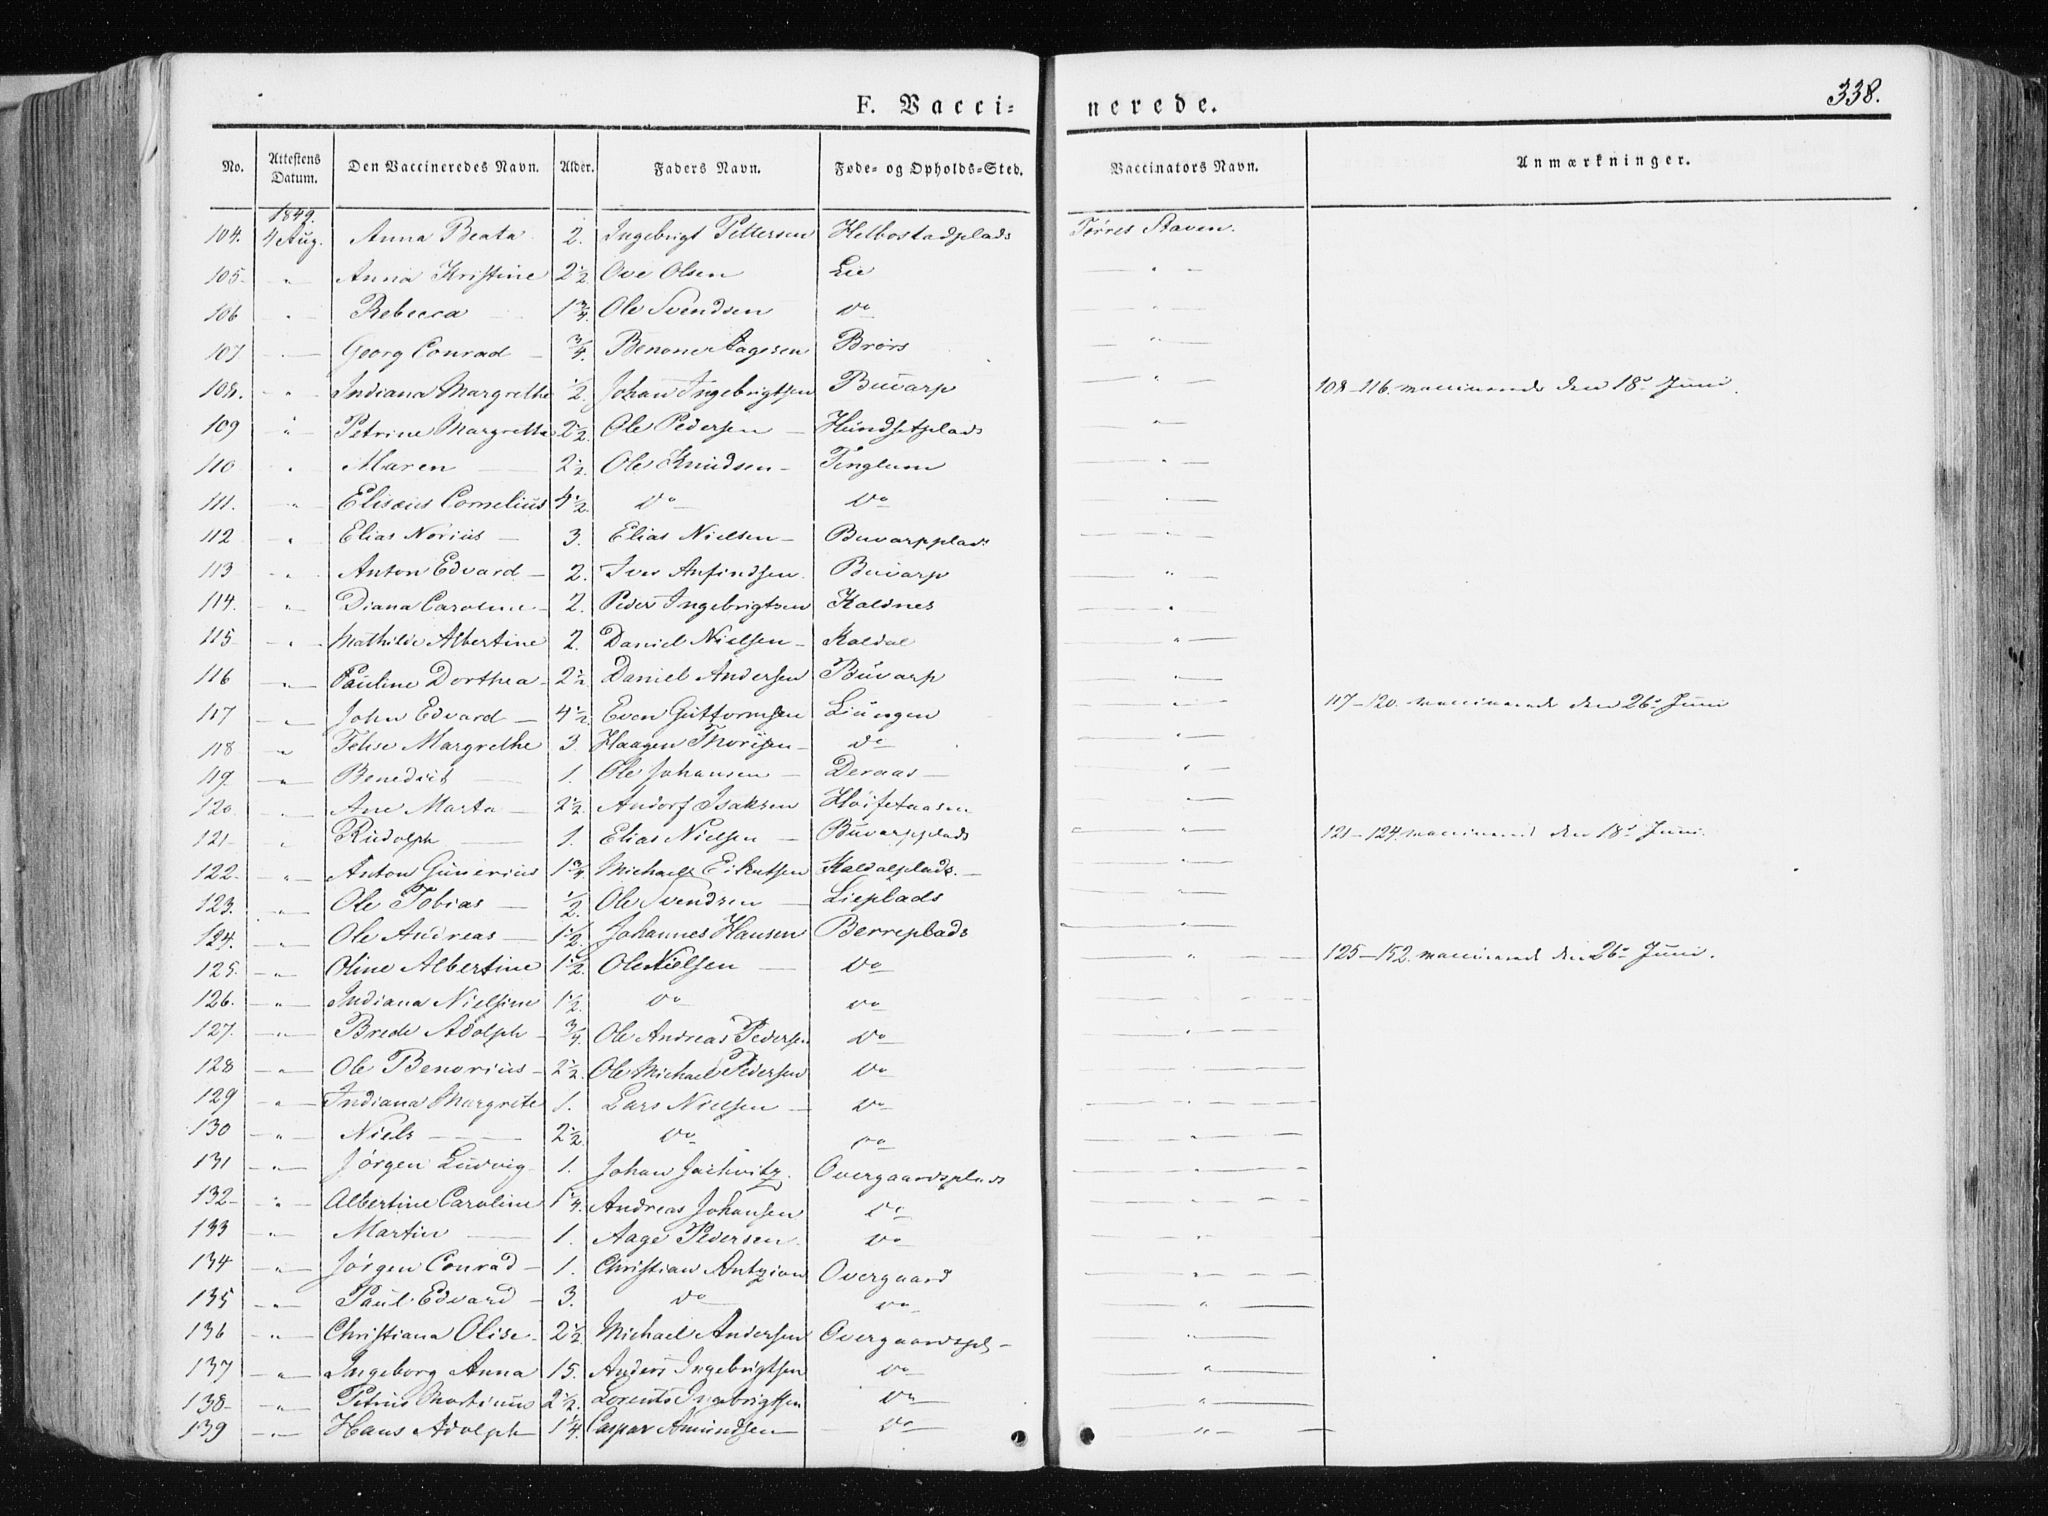 338.
F. Vacci= nerede.
No. Attestens Datum. Den Vaccineredes Navn. Alder. Faders Navn. Føde= og Opholds=Sted. Vaccinators Navn. Anmærkninger.
1849.
104. 4 Aug. Anna Beata 2. Ingebrigt Pettersen Helbostadplads Tørres Staven.
105. " Anna Kristine 2 1/2. Ove Olsen Lie — " —
106 " Rebecca — 1 3/4. Ole Svendsen do "
107 " Georg Conrad — 3/4. Benoner Aagesen Brørs — " —
108. " Indiana Margrethe 1/2. Johan Ingebrigtsen Buvarp — " — 108–116. vaccinerede den 18d Juni.
109 " Petrine Margrethe 2 1/2. Ole Pedersen — Hundsetplads — " —
110 " Maren — 2 1/2. Ole Knudsen — Tinglum — " —
111. " Elisæus Cornelius 4 1/2. do do — " —
112 " Elias Norius — 3. Elias Nielsen — Buvarpplads — " —
113 " Anton Edvard — 2. Iver Anfindsen. Buvarp — " —
114. " Diana Caroline — 2. Peder Ingebrigtsen Kaldnes — " —
115. " Mathilde Albertine 2. Daniel Nielsen — Kaldal — " —
116 " Pauline Dorthea — 2 1/2 Daniel Andersen Buvarp — " —
117 " John Edvard — 4 1/2. Even Guttormsen Liungen — " — 117–120. vaccinerede den 26d Juni
118 " Margrethe 3. Haagen Thorisen — do — " —
119. " Benedict — 1. Ole Johansen — Deraas — — " —
120. " Ane Marta — 2 1/2. Andorf Isaksen — " —
121 " Rudolph — 1. Elias Nielsen — Buvarpplads — " — 121–124. vaccinered den 18d Juni.
122. " Anton Gunerius 1 3/4. Michael Kaldalplads. — — " —
123. " Ole Tobias — 1/2. Ole Svendsen — Lieplads — " —
124. " Ole Andreas — 1 1/2. Johannes Hansen Berreplads — " —
125. " Oline Albertine 1 1/2. Ole Nielsen — do — " — 125–152. vaccinerede den 26d Juni.
126. " Indiana Nielsine 1 1/2. do do — " —
127. " Brede Adolph — 3/4. Ole Andreas Pedersen do — " —
128 " Ole Benorius — 2 1/2. Ole Michael Pedersen do — " —
129 " Indiana Margrete 1. Lars Nielsen — do — " —
130 " Niels — 2 1/2. do do — " —
131 " Jørgen Ludvig 1. Johan Overgaardsplads — " —
132 " Albertine Caroline 1 1/4. Andreas Johansen do — " —
133 " Martin — 1. Aage Pedersen. do — " —
134 " Jørgen Conrad — 1. Christian Antzion Overgaard — " —
135 " Paul Edvard — 3. do do — " —
136 " Christiana Olise — 2 1/2 Michael Andersen Overgaardspl — — " —
137 " Ingeborg Anna 15. Anders Ingebrigtsen do — " —
138 " Petrus Martinus 2 1/2. Lorents Ingebrigtsen do — " —
139 " Hans Adolph — 1 1/4. Caspar Amundsen — do — " —